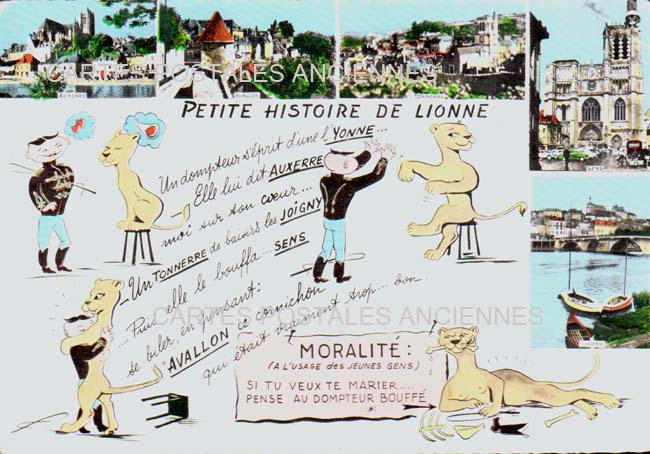 AUXERRE
AVALLON
TONNERRE
SENS
PETITE HISTOIRE DE LIONNE
Un dompteur s'éprit d'une l'YONNE...
Elle lui dit AUXERRE
moi sur ton cœur...
Un TONNERRE de baisers les JOIGNY
.... Puis elle le bouffa... SENS
se biler, en pensant:
"AVALLON ce cornichon
qui était vraiment trop... bon...
MORALITÉ:
(A L'USAGE des JEUNES GENS)
SI TU VEUX TE MARIER....
PENSE AU DOMPTEUR BOUFFÉ
CARTES POSTALES ANCIENNES
CARTES POSTALES ANCIENNES